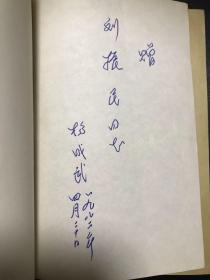 赠
刘振民同志
杨成武
一九八二年
四月二十日